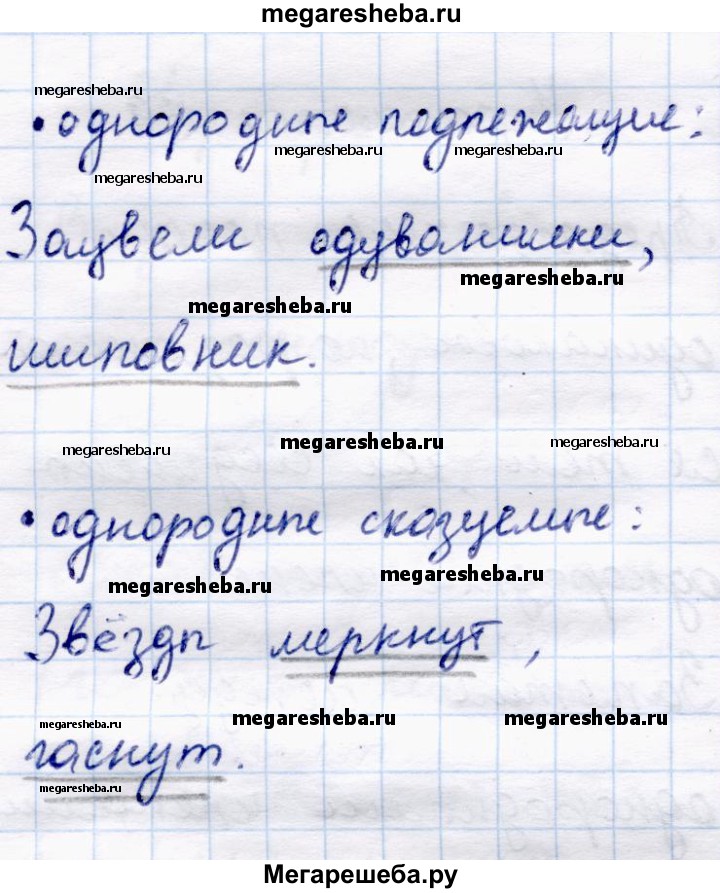 megaresheba.ru
megaresheba.ru
• однородные подлежащие:
megaresheba.ru megaresheba.ru
megaresheba.ru
Зацвели одуванчики,
megaresheba.ru
megaresheba.ru
шиповник.
megaresheba.ru megaresheba.ru megaresheba.ru
• однородные сказуемые:
megaresheba.ru megaresheba.ru
Звёзды меркнут,
megaresheba.ru megaresheba.ru megaresheba.ru
гаснут.
megaresheba.ru
Мегарешеба.ру